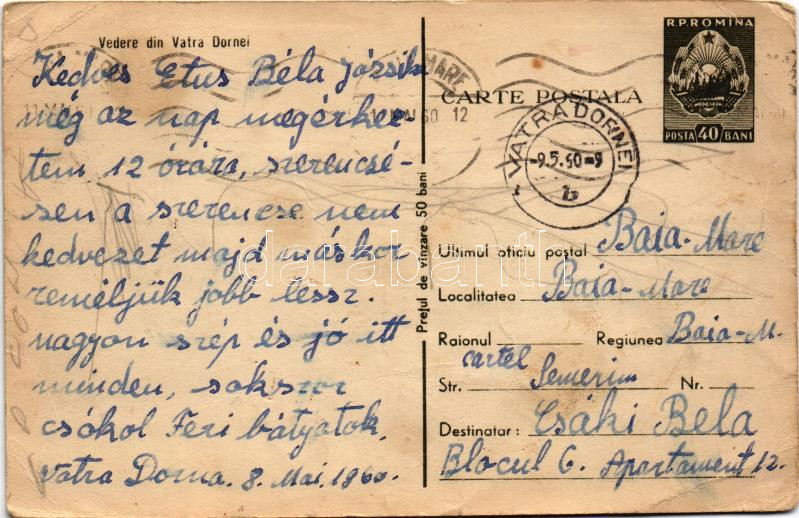 Vedere din Vatra Dornei
Kedves Etus Béla Józsika
még az nap megérkez-
tem 12 órára, szerencsé-
sen a szerencse nem
kedvezet majd máskor
reméljük jobb lessz.
nagyon szép és jó itt
minden, sokszor
csókol Feri bátyátok,
Vatra Dorna. 8. Mai. 1960.
Prețul de vînzare 50 bani
R.P.ROMINA
POSTA 40 BANI
CARTE POSTALA
VATRA DORNEI
-9.5.60-9
MARE
60 12
Ultimul oficiu poștal Baia-Mare
Localitatea Baia-Mare
Raionul Regiunea Baia-M.
cartel
Str. Semerim Nr.
Destinatar: Csáki Bela
Blocul 6. Apartament 12.
darabanth